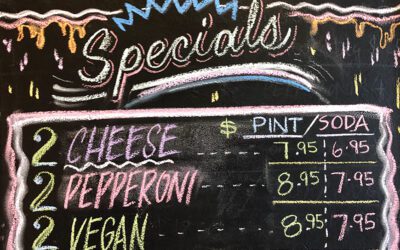 Specials
$ PINT/SODA
2 CHEESE 7.95 6.95
2 PEPPERONI 8.95 7.95
2 VEGAN 8.95 7.95